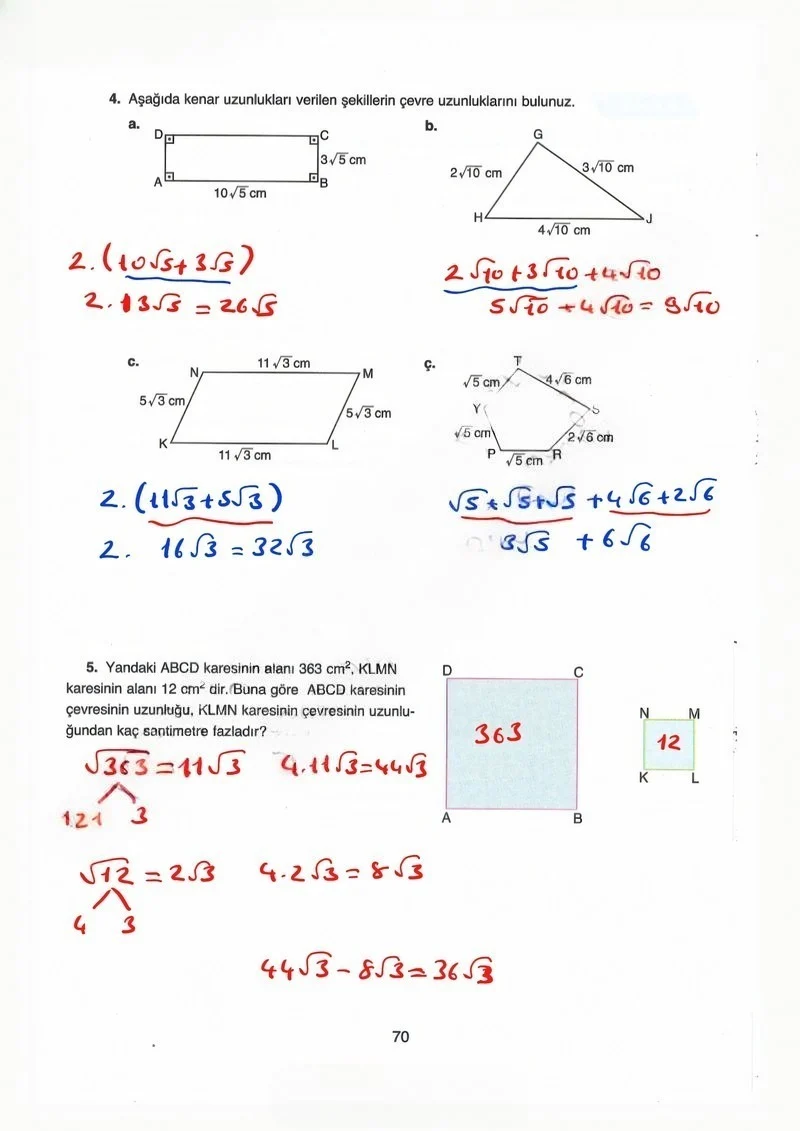 4. Aşağıda kenar uzunlukları verilen şekillerin çevre uzunluklarını bulunuz.
a.
D
C
3√5 cm
A
B
10√5 cm
b.
G
2√10 cm
3√10 cm
H
J
4√10 cm
2.(10√5+3√5)
2.13√5 = 26√5
2√10+3√10+4√10
5√10+4√10=9√10
c.
11√3 cm
N
M
5√3 cm
5√3 cm
K
L
11√3 cm
ç.
T
√5 cm
4√6 cm
Y
S
√5 cm
2√6 cm
P
R
√5 cm
2.(11√3+5√3)
2. 16√3 = 32√3
√5+√5+√5+4√6+2√6
3√5 + 6√6
5. Yandaki ABCD karesinin alanı 363 cm², KLMN
karesinin alanı 12 cm² dir. Buna göre ABCD karesinin
çevresinin uzunluğu, KLMN karesinin çevresinin uzunlu-
ğundan kaç santimetre fazladır?
D
C
363
A
B
N
M
12
K
L
√363=11√3 4.11√3=44√3
121 3
√12=2√3 4.2√3=8√3
4 3
44√3-8√3=36√3
70